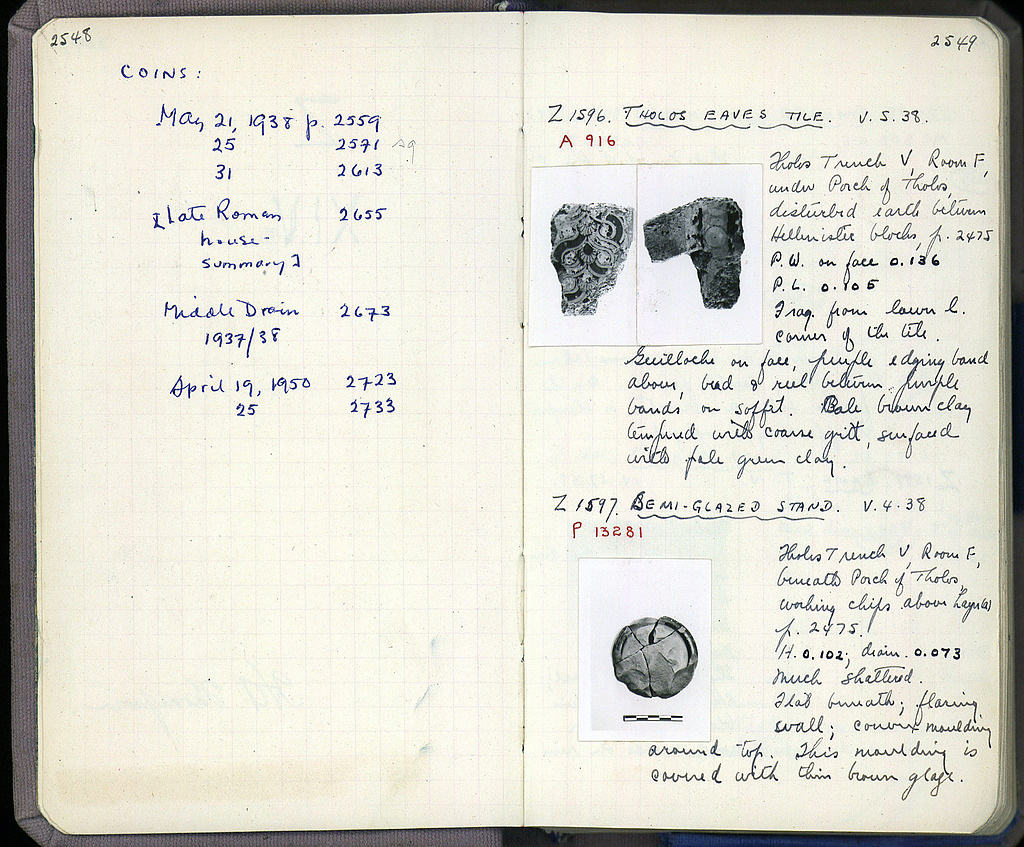 2548
COINS:
May 21, 1938 p. 2559
25 2571
31 2613
[Late Roman 2655
house-
summary]
Middle Drain 2673
1937/38
April 19, 1950 2723
25 2733
2549
Z 1596. THOLOS EAVES TILE. V.5.38.
A 916
Tholos Trench V, Room F,
under Porch of Tholos,
disturbed earth between
Hellenistic blocks, p. 2475
P.W. on face 0.136
P.L. 0.105
Frag. from lower l.
corner of the tile.
Guilloche on face, purple edging band
above, bead & reel between purple
bands on soffit. Pale brown clay
tempered with coarse grit, surfaced
with pale green clay.
Z 1597. SEMI-GLAZED STAND. V.4.38
P 13281
Tholos Trench V, Room F,
beneath Porch of Tholos,
working chips above Layer
p. 2475.
H. 0.102; diam. 0.073
Much shattered.
Flat beneath; flaring
wall; convex moulding
around top. This moulding is
covered with thin brown glaze.